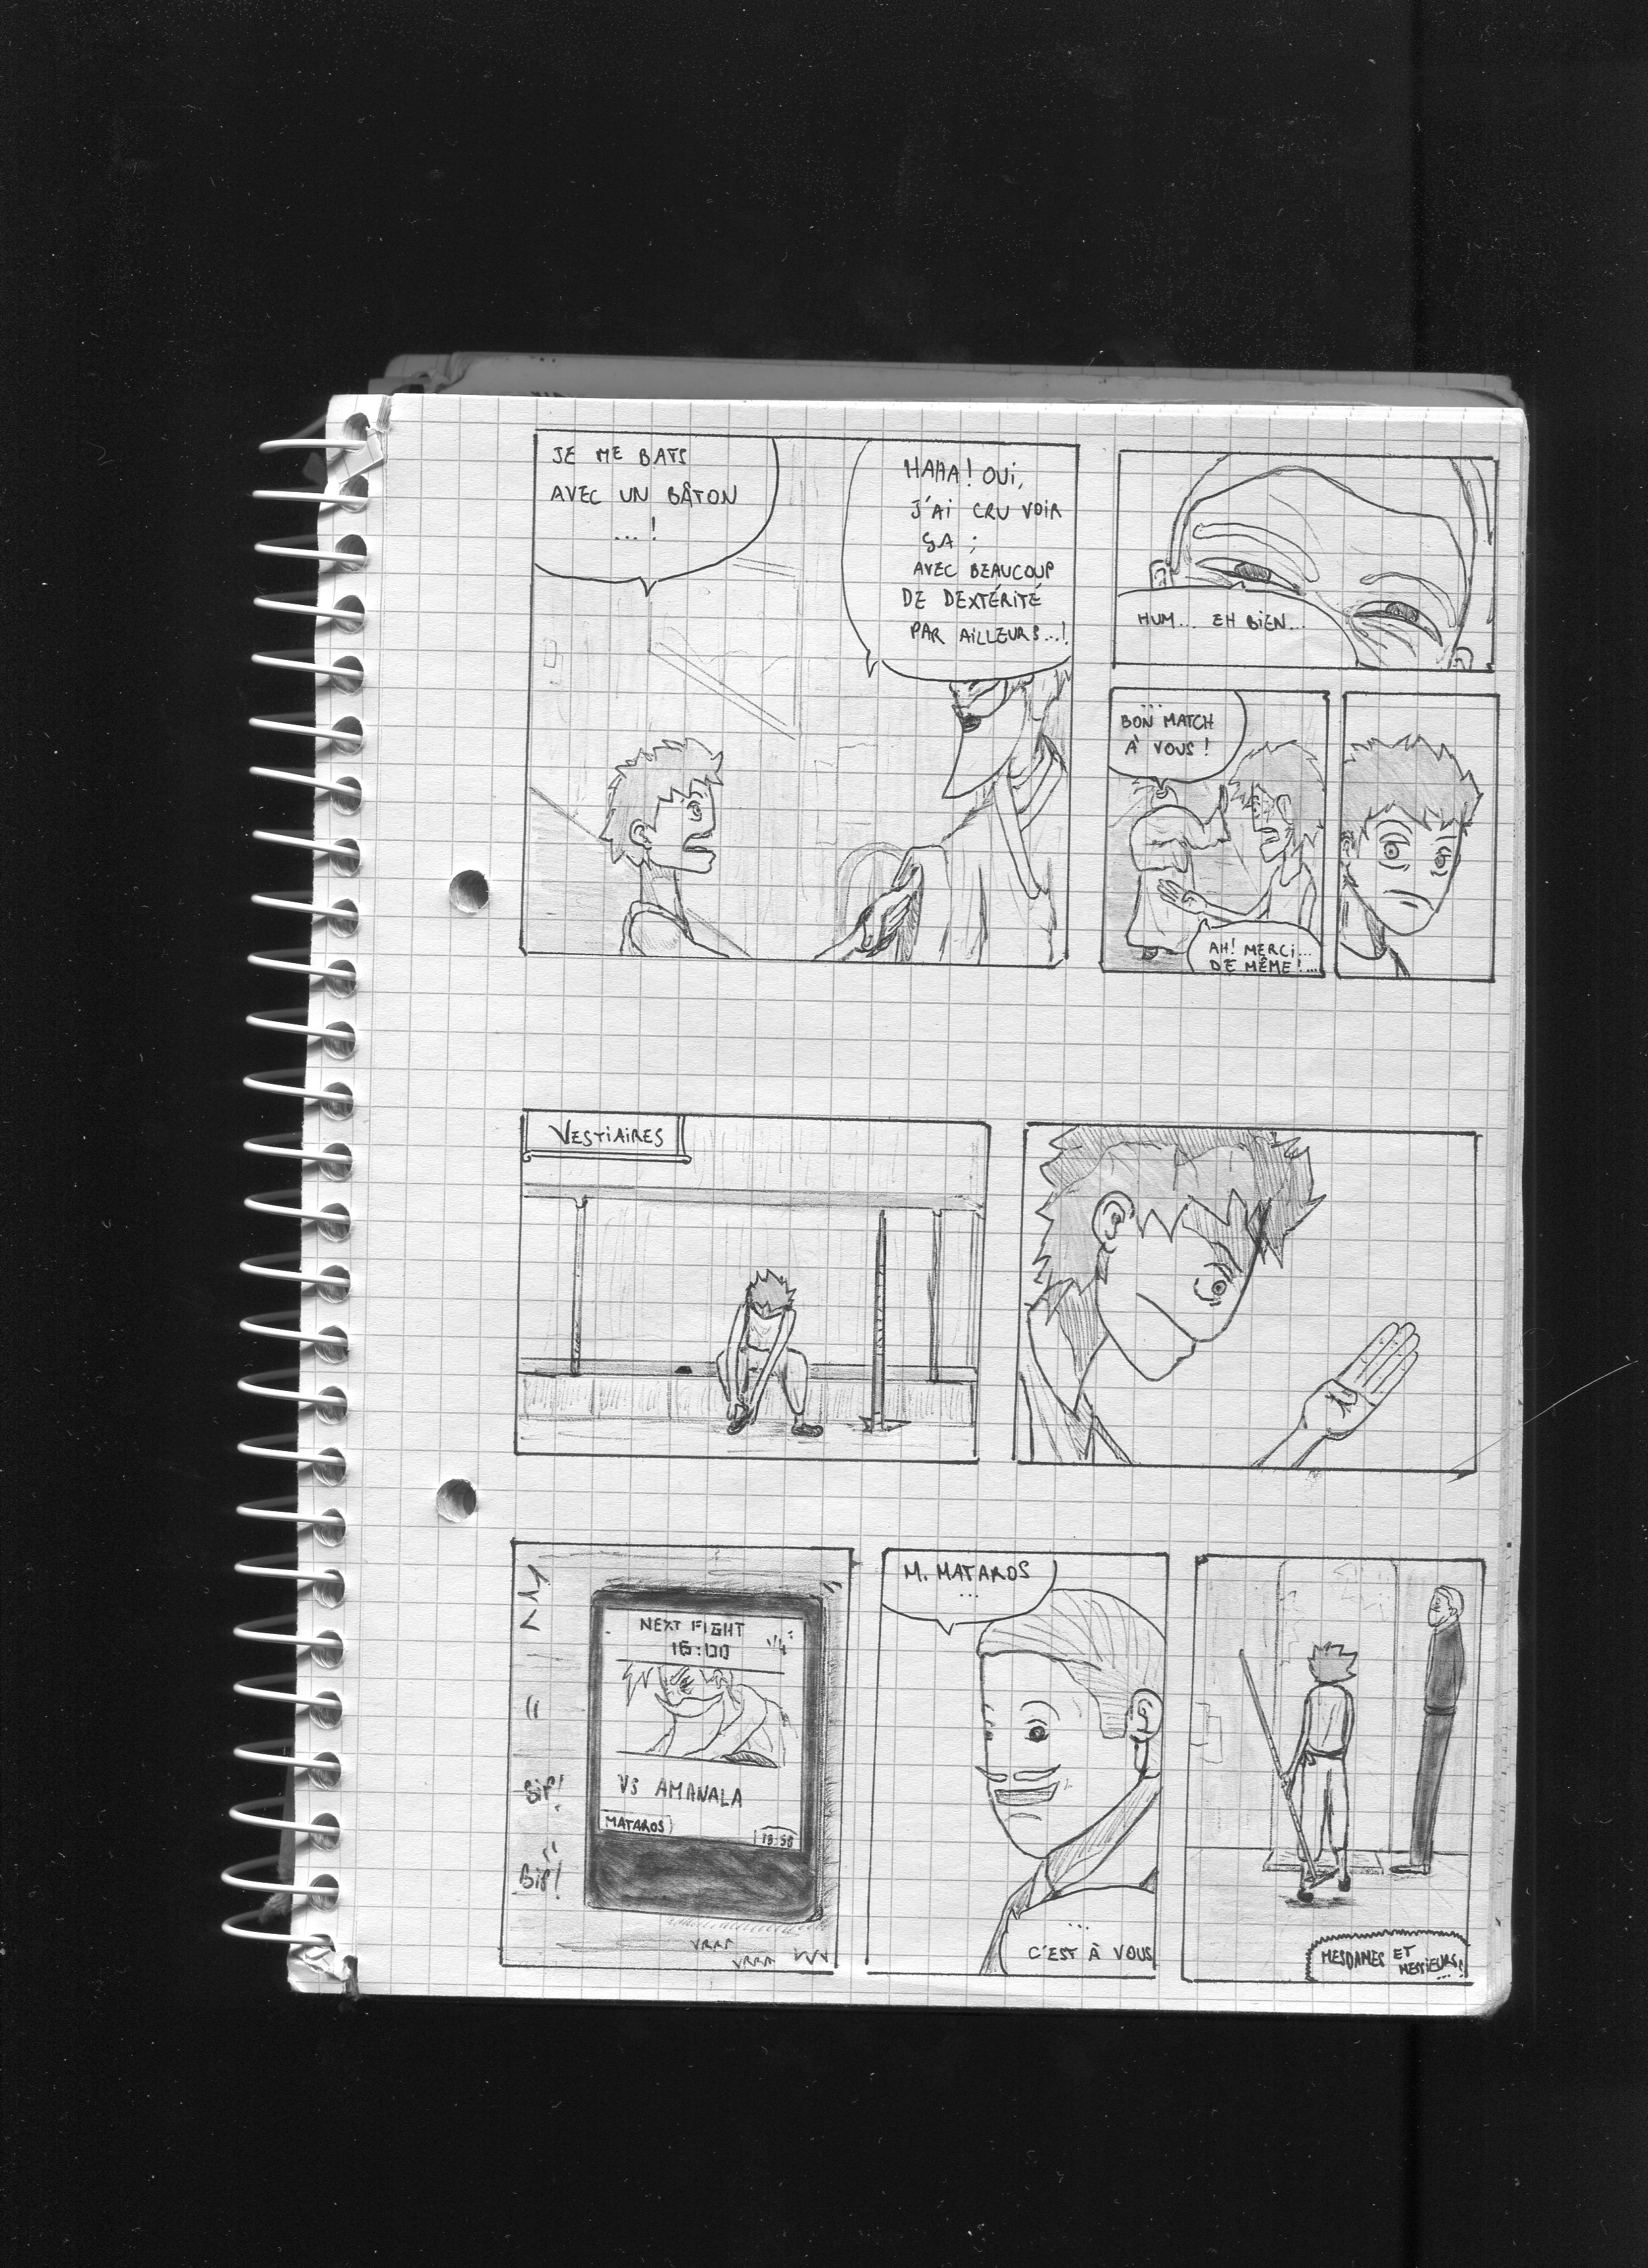 JE ME BATS
AVEC UN BÂTON
...!
HAHA! OUI,
J'AI CRU VOIR
ÇA ;
AVEC BEAUCOUP
DE DEXTÉRITÉ
PAR AILLEURS...!
HUM... EH BIEN...
...
BON MATCH
À VOUS !
AH! MERCI...
DE MÊME !...
VESTIAIRES
NEXT FIGHT
16:00
1/4
VS AMANALA
MATAROS
Bip!
Bip!
VRRR
VRRR
M. MATAROS
...
...
C'EST À VOUS
MESDAMES ET
MESSIEURS!
...